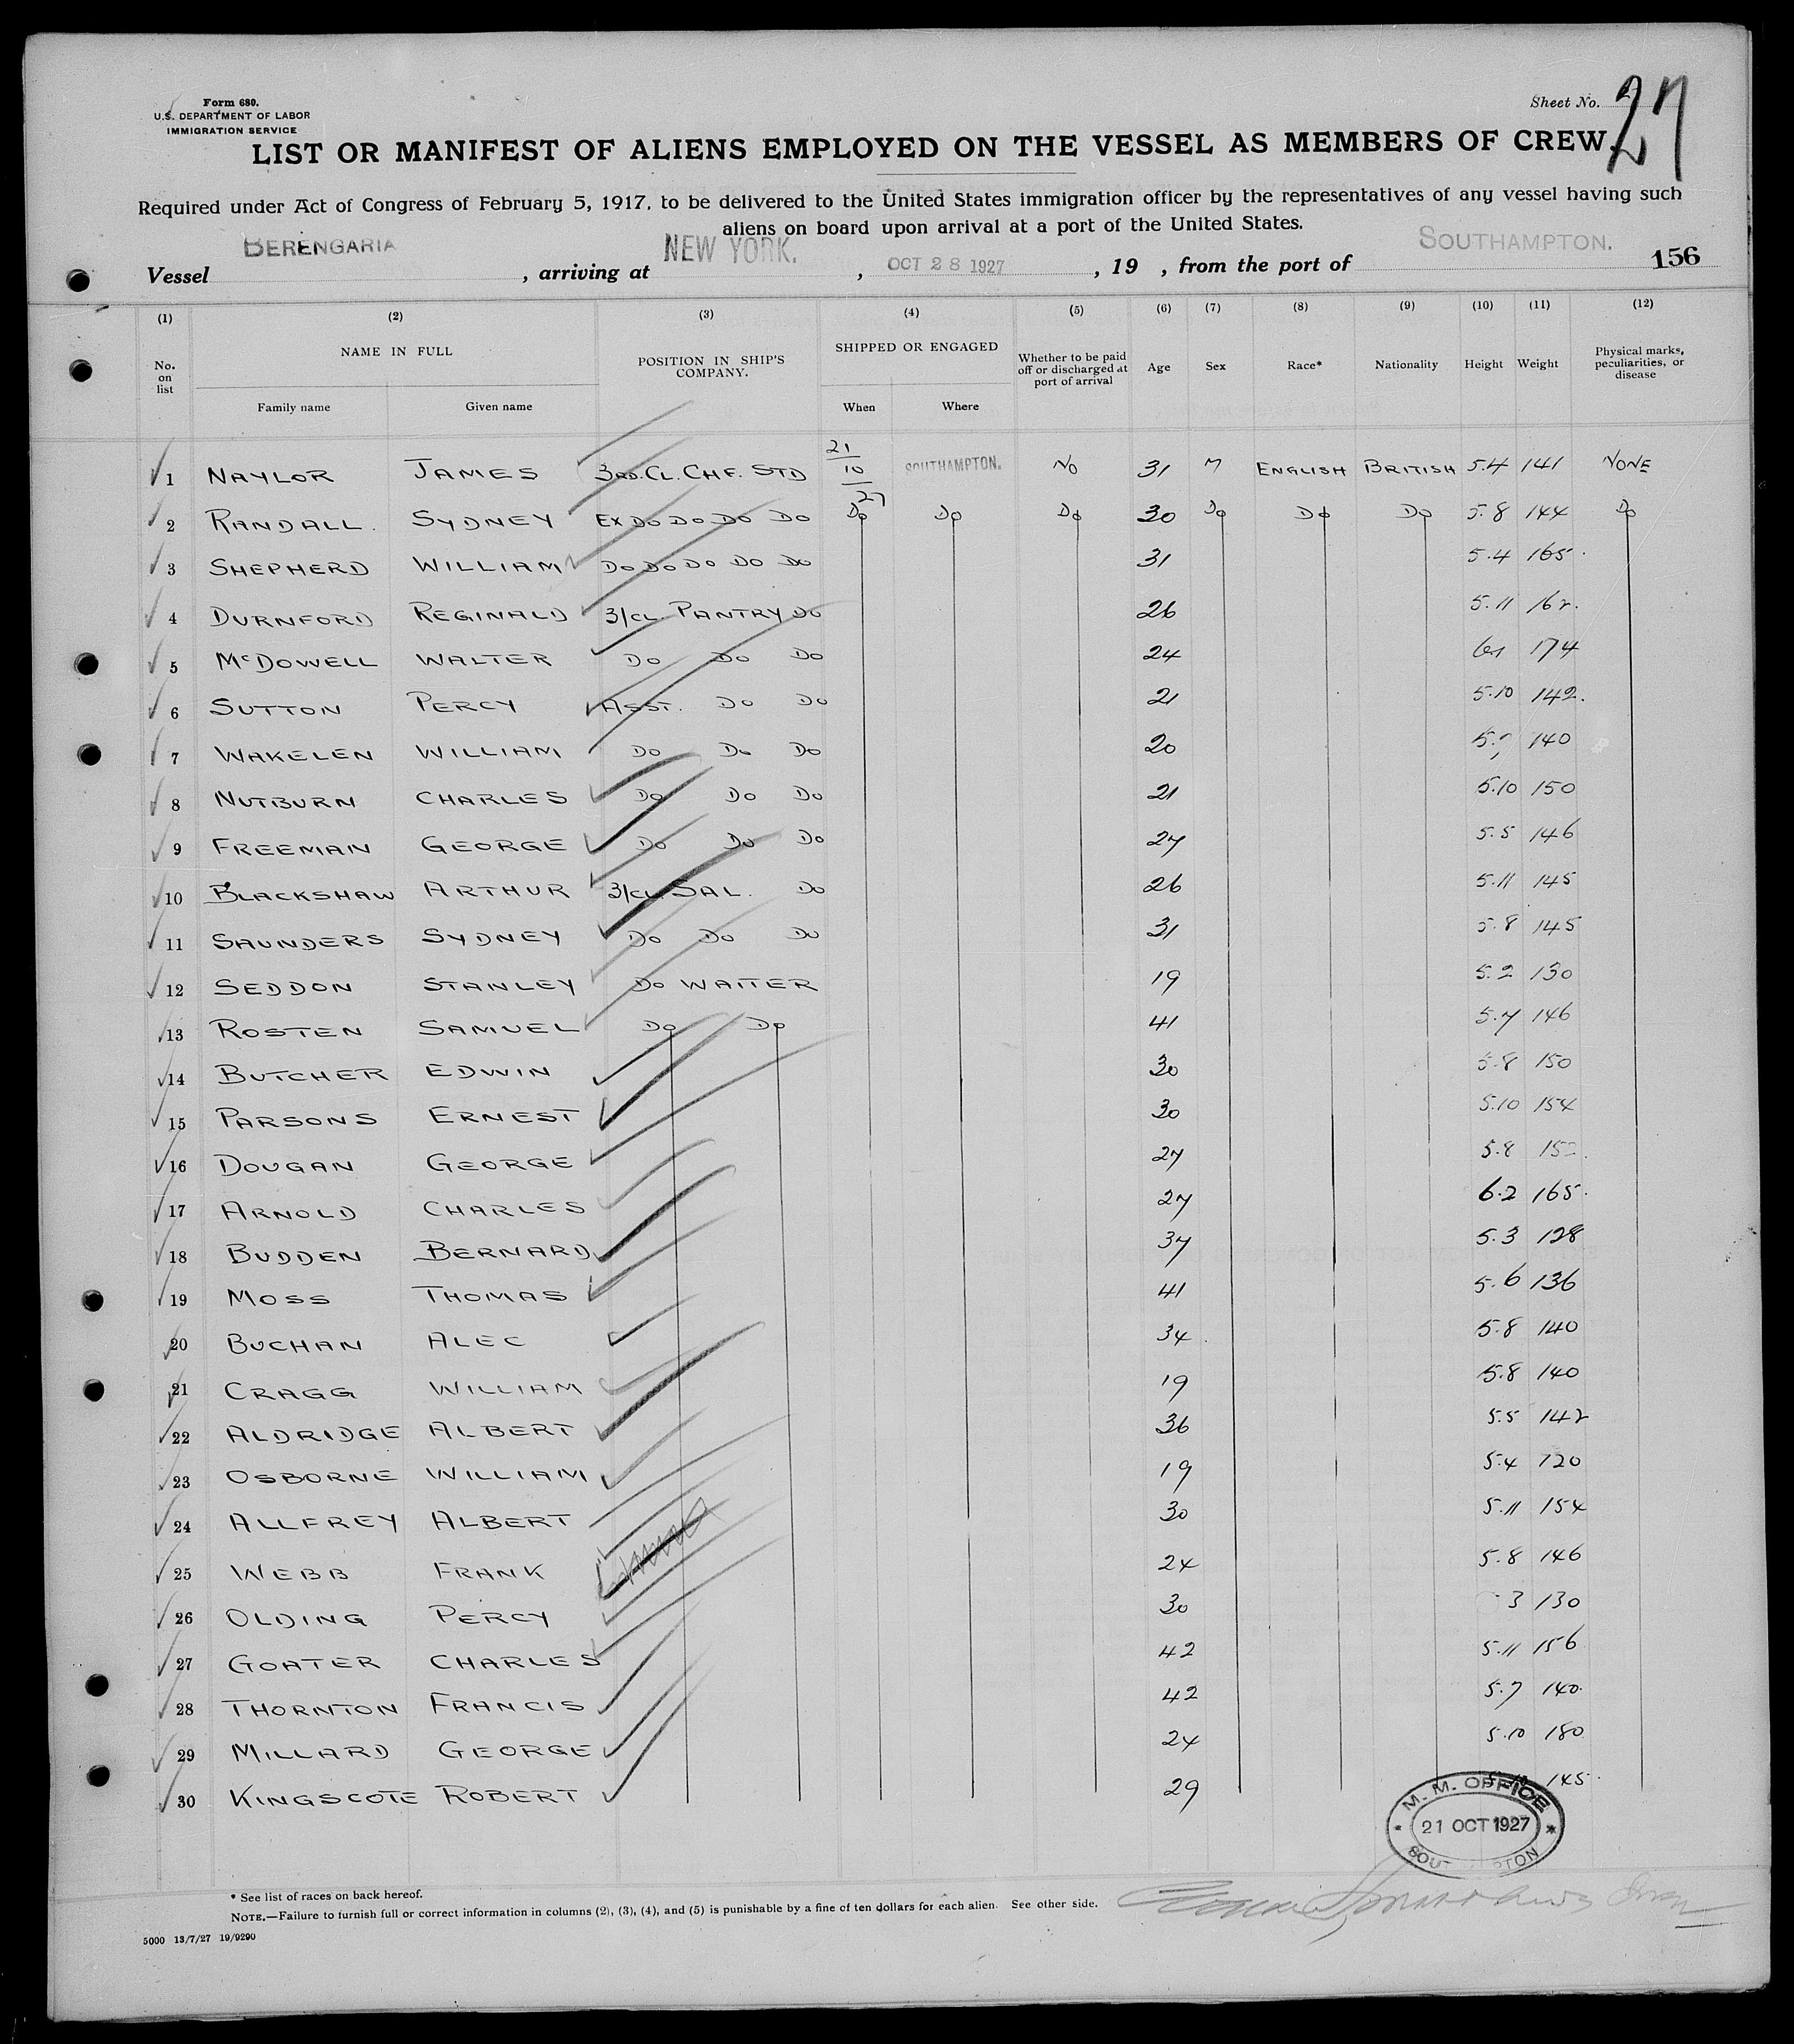 Form 680.
U.S. DEPARTMENT OF LABOR
IMMIGRATION SERVICE
Sheet No. 27
LIST OR MANIFEST OF ALIENS EMPLOYED ON THE VESSEL AS MEMBERS OF CREW.
Required under Act of Congress of February 5, 1917, to be delivered to the United States immigration officer by the representatives of any vessel having such
aliens on board upon arrival at a port of the United States.
Vessel BERENGARIA, arriving at NEW YORK., OCT 28 1927, 19 , from the port of SOUTHAMPTON. 156
(1) (2) (3) (4) (5) (6) (7) (8) (9) (10) (11) (12)
No. on list NAME IN FULL POSITION IN SHIP'S COMPANY. SHIPPED OR ENGAGED Whether to be paid off or discharged at port of arrival Age Sex Race* Nationality Height Weight Physical marks, peculiarities, or disease
Family name Given name When Where
1 NAYLOR JAMES 3RD. CL. CHF. STD 21/10/27 SOUTHAMPTON. NO 31 M ENGLISH BRITISH 5.4 141 NONE
2 RANDALL. SYDNEY EX DO DO DO DO DO DO DO 30 DO DO DO 5.8 144 DO
3 SHEPHERD WILLIAM DO DO DO DO DO 31 5.4 165
4 DURNFORD REGINALD 3/CL PANTRY DO 26 5.11 162.
5 McDOWELL WALTER DO DO DO 24 174
6 SUTTON PERCY ASST. DO DO 21 5.10 142.
7 WAKELEN WILLIAM DO DO DO 20 140
8 NUTBURN CHARLES DO DO DO 21 5.10 150
9 FREEMAN GEORGE DO DO DO 27 5.5 146
10 BLACKSHAW ARTHUR 3/CL SAL. DO 26 5.11 145
11 SAUNDERS SYDNEY DO DO DO 31 5.8 145
12 SEDDON STANLEY DO WAITER 19 5.2 130
13 ROSTEN SAMUEL DO DO 41 5.7 146
14 BUTCHER EDWIN 30 5.8 150
15 PARSONS ERNEST 30 5.10 154
16 DOUGAN GEORGE 27 5.8
17 ARNOLD CHARLES 27 6.2 165.
18 BUDDEN BERNARD 37 5.3 128
19 MOSS THOMAS 41 5.6 136
20 BUCHAN ALEC 34 5.8 140
21 CRAGG WILLIAM 19 5.8 140
22 ALDRIDGE ALBERT 36 5.5 142
23 OSBORNE WILLIAM 19 5.4 120
24 ALLFREY ALBERT 30 5.11 154
25 WEBB FRANK 24 5.8 146
26 OLDING PERCY 30 3 130
27 GOATER CHARLES 42 5.11 156
28 THORNTON FRANCIS 42 5.7 140.
29 MILLARD GEORGE 24 5.10 180
30 KINGSCOTE ROBERT 29 145.
M. M. OFFICE
21 OCT 1927
* See list of races on back hereof.
NOTE.—Failure to furnish full or correct information in columns (2), (3), (4), and (5) is punishable by a fine of ten dollars for each alien. See other side.
5000 13/7/27 19/9290